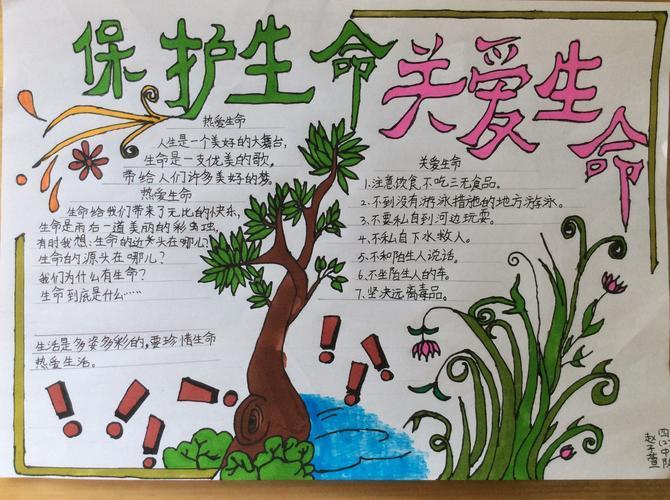 保护生命
关爱生命
热爱生命
人生是一个美好的大舞台，
生命是一支优美的歌，
带给人们许多美好的梦。
热爱生命
生命给我们带来了无比的快乐，
生命是雨后一道美丽的彩虹，
有时我想：生命的边头在哪儿？
生命的源头在哪儿？
我们为什么有生命？
生命到底是什么……
生活是多姿多彩的，要珍惜生命
热爱生活。
关爱生命
1.注意饮食，不吃三无食品。
2.不到没有游泳措施的地方游泳。
3.不要私自到河边玩耍。
4.不私自下水救人。
5.不和陌生人说话。
6.不坐陌生人的车。
7.坚决远离毒品。
赵子萱